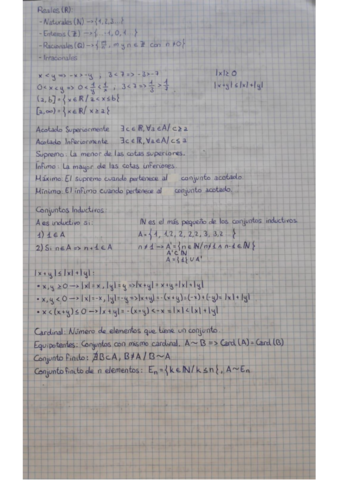 Reales (ℝ):
- Naturales (ℕ) → {1, 2, ...}
- Enteros (ℤ) → {... -1, 0, 1...}
- Racionales (ℚ) → {m/n, m y n ∈ ℤ con n≠0}
- Irracionales
x < y => -x > -y, 3 < 7 => -3 > -7 |x| ≥ 0
0 < x < y => 0 < 1/y < 1/x, 3 < 7 => 1/7 < 1/3 |x+y| ≤ |x|+|y|
[a, ∞) = {x ∈ ℝ / x ≥ a}
Acotado Superiormente ∃c∈ℝ, ∀a∈A / c ≥ a
Acotado Inferiormente ∃c∈ℝ, ∀a∈A / c ≤ a
Supremo: La menor de las cotas superiores.
Ínfimo: La mayor de las cotas inferiores.
Máximo: El supremo cuando pertenece al conjunto acotado.
Mínimo: El ínfimo cuando pertenece al conjunto acotado.
Conjuntos Inductivos:
A es inductivo si: ℕ es el más pequeño de los conjuntos inductivos.
1) 1 ∈ A
2) Si n∈A => n+1 ∈ A
A = {1} ∪ A'
|x+y| ≤ |x|+|y|:
Cardinal: Número de elementos que tiene un conjunto.
Equipotentes: Conjuntos con mismo cardinal. A ~ B => Card(A) = Card(B)
Conjunto Finito: ∄B⊂A, B≠A / B ~ A
Conjunto finito de n elementos: Eₙ = {k∈ℕ / k ≤ n}, A ~ Eₙ